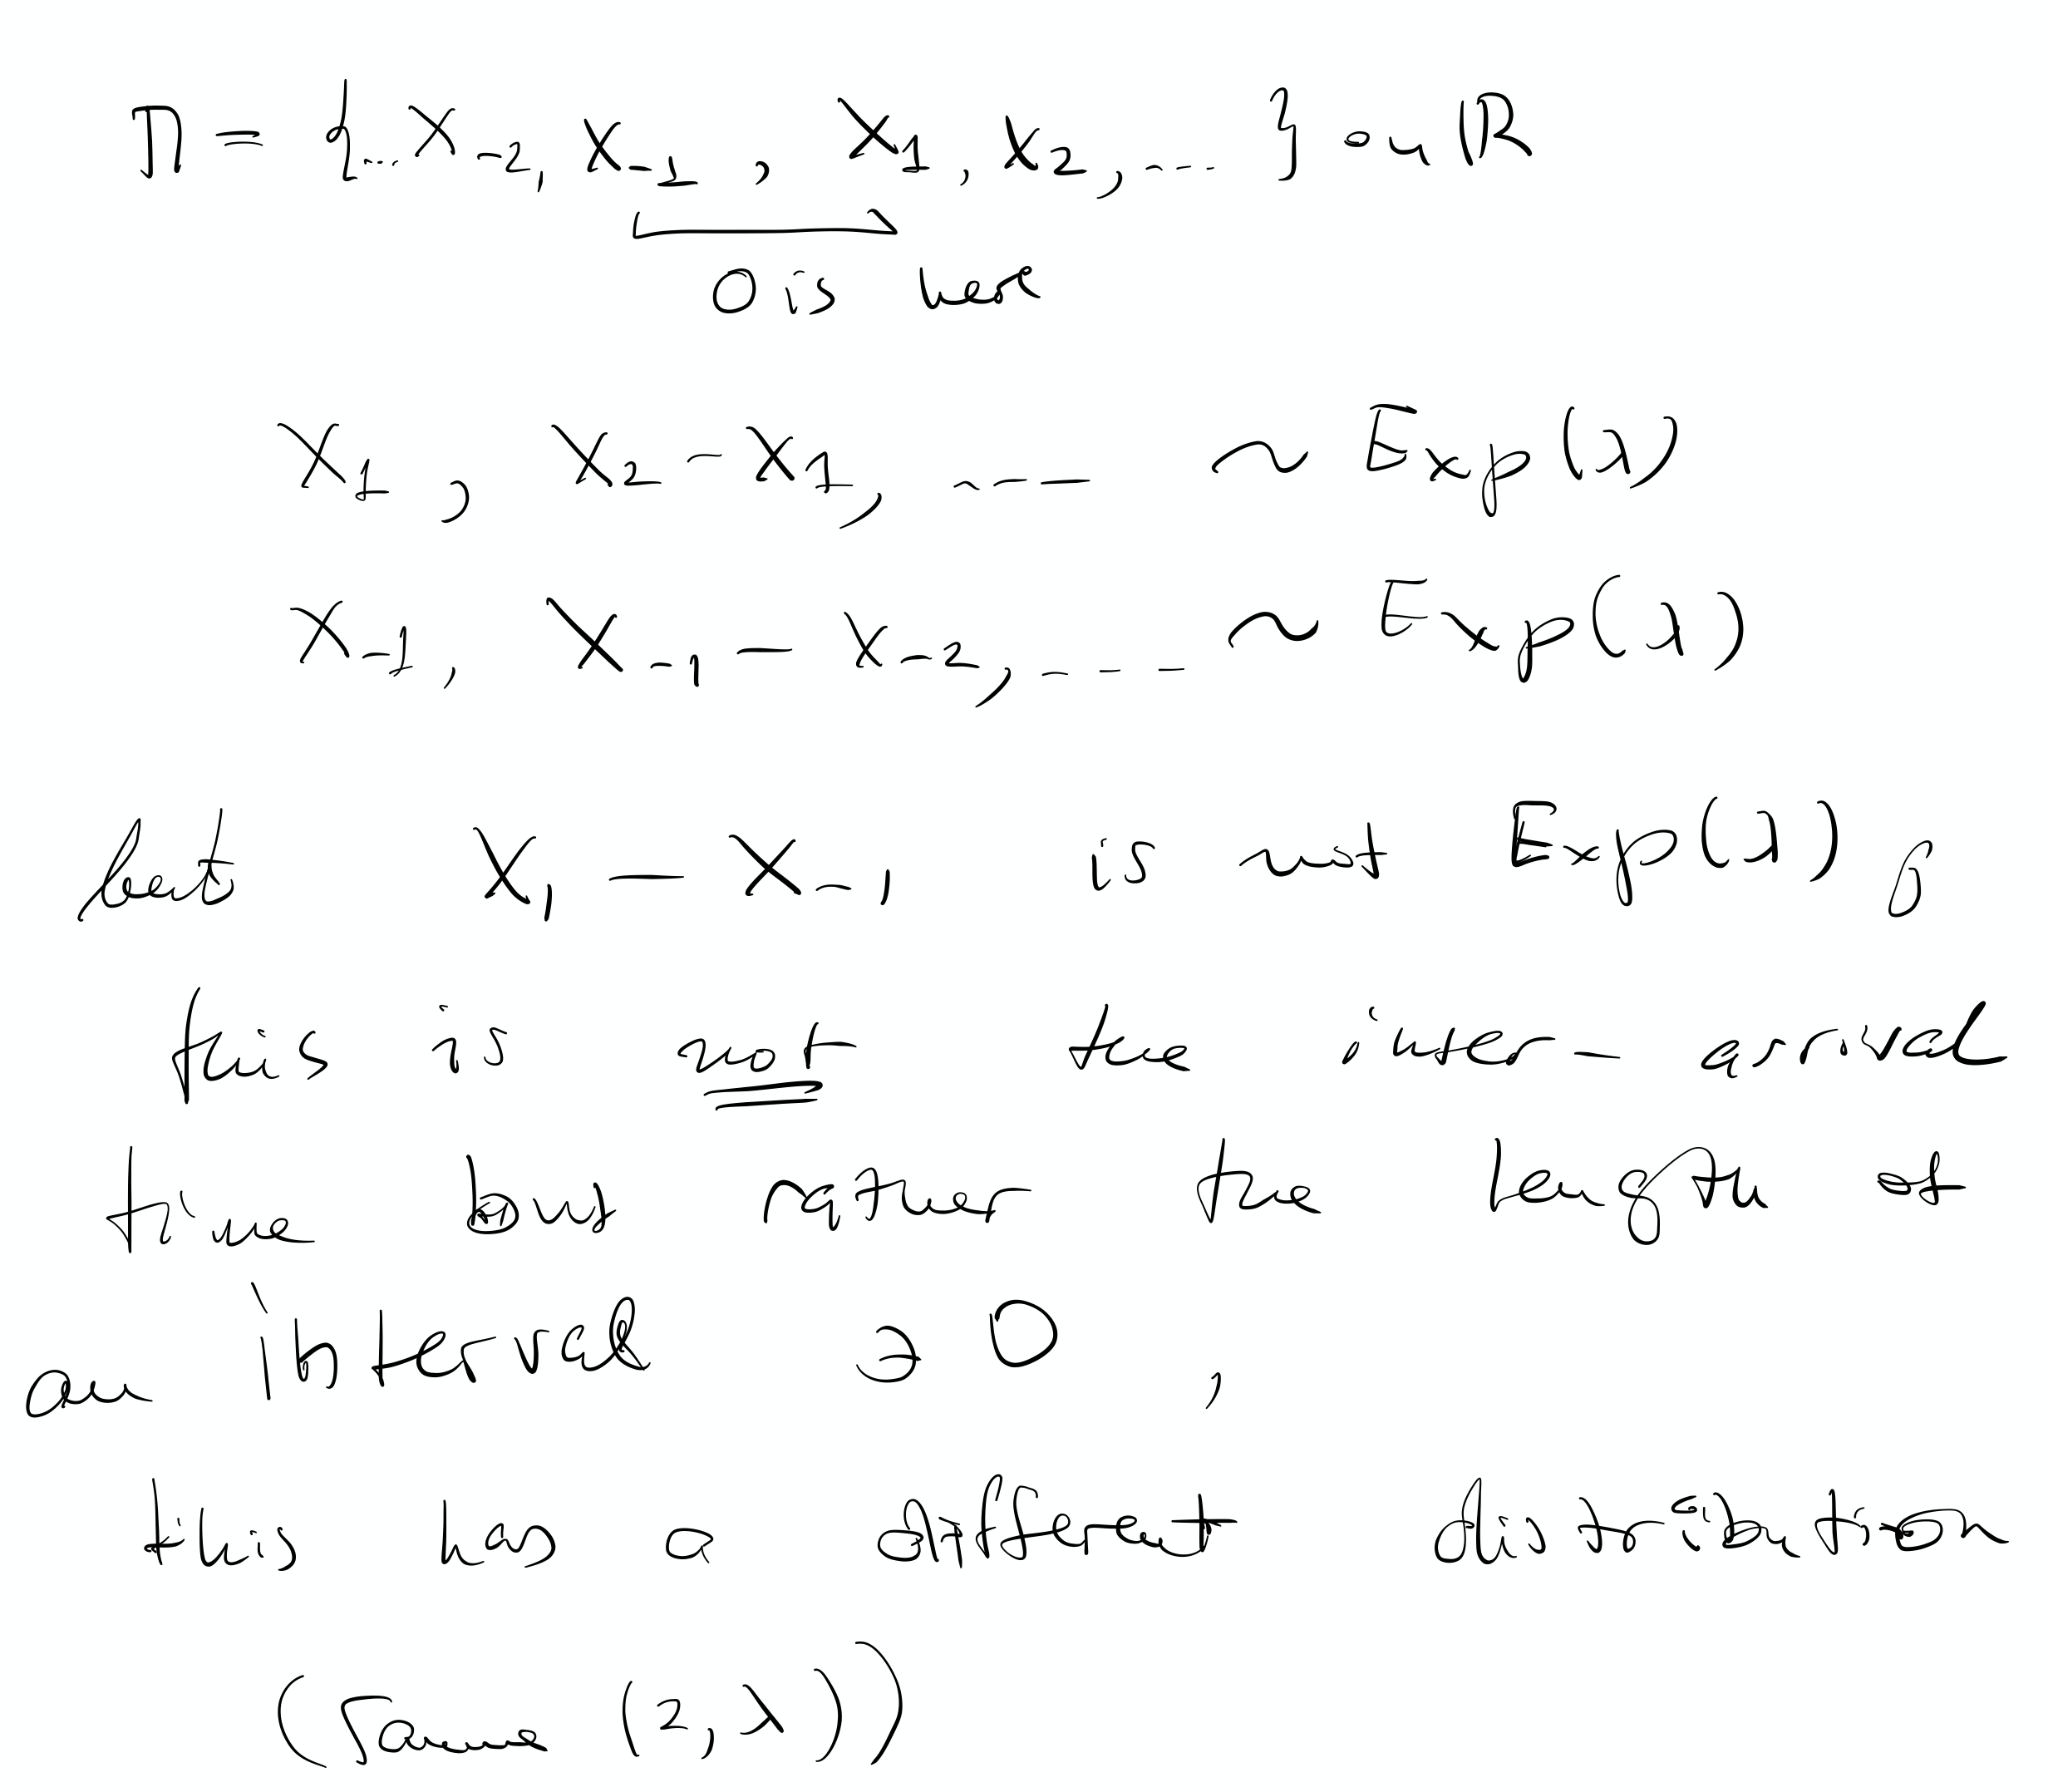 Π = {... X₋₂, X₋₁, X₁, X₂, ... } on ℝ
0 is here
X₁, X₂ - X₁, --- ~ Exp(λ)
X₋₁, X₋₁ - X₋₂, --- ~ Exp(λ)
but X₁ - X₋₁ is not Exp(λ),
this is not the inter-arrival
time but rather the length of
an interval ∋ 0,
this has a different distribution
(Gamma (2, λ))